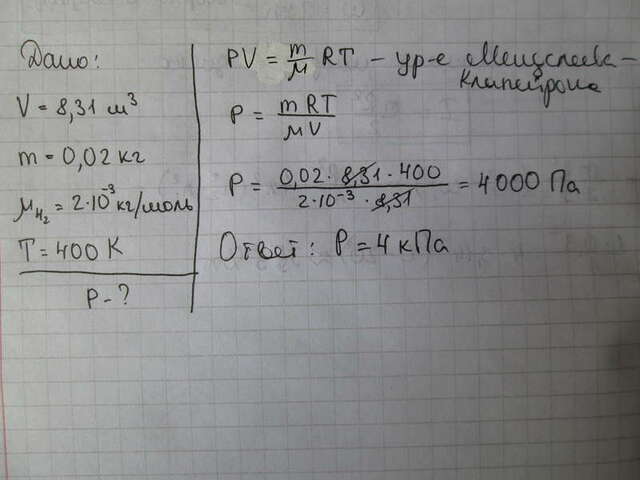 Дано:
V = 8,31 м³
m = 0,02 кг
μH₂ = 2·10⁻³ кг/моль
T = 400 К
P - ?
PV = m/μ RT - ур-е Менделеева-
Клапейрона
P = mRT/μV
P = 0,02 · 8,31 · 400 / 2·10⁻³ · 8,31 = 4000 Па
Ответ: P = 4 кПа